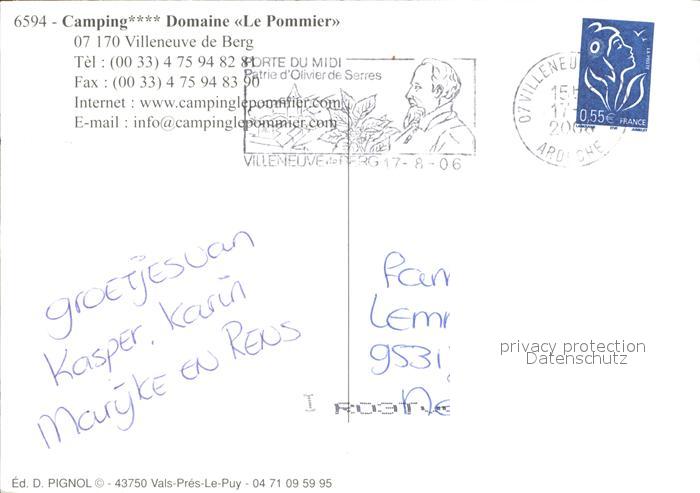 6594 - Camping**** Domaine «Le Pommier»
07 170 Villeneuve de Berg
Tèl : (00 33) 4 75 94 82 81
Fax : (00 33) 4 75 94 83 90
Internet : www.campinglepommier.com
E-mail : info@campinglepommier.com
PORTE DU MIDI
Patrie d'Olivier de Serres
VILLENEUVE de BERG 17-8-06
07 VILLENEU
ARDECHE
LA POSTE
0,55€ FRANCE
groetjes van
Kasper, Karin
Marijke EN RENS
Fam
Lemm
9531
Ne
privacy protection
Datenschutz
Éd. D. PIGNOL © - 43750 Vals-Prés-Le-Puy - 04 71 09 59 95